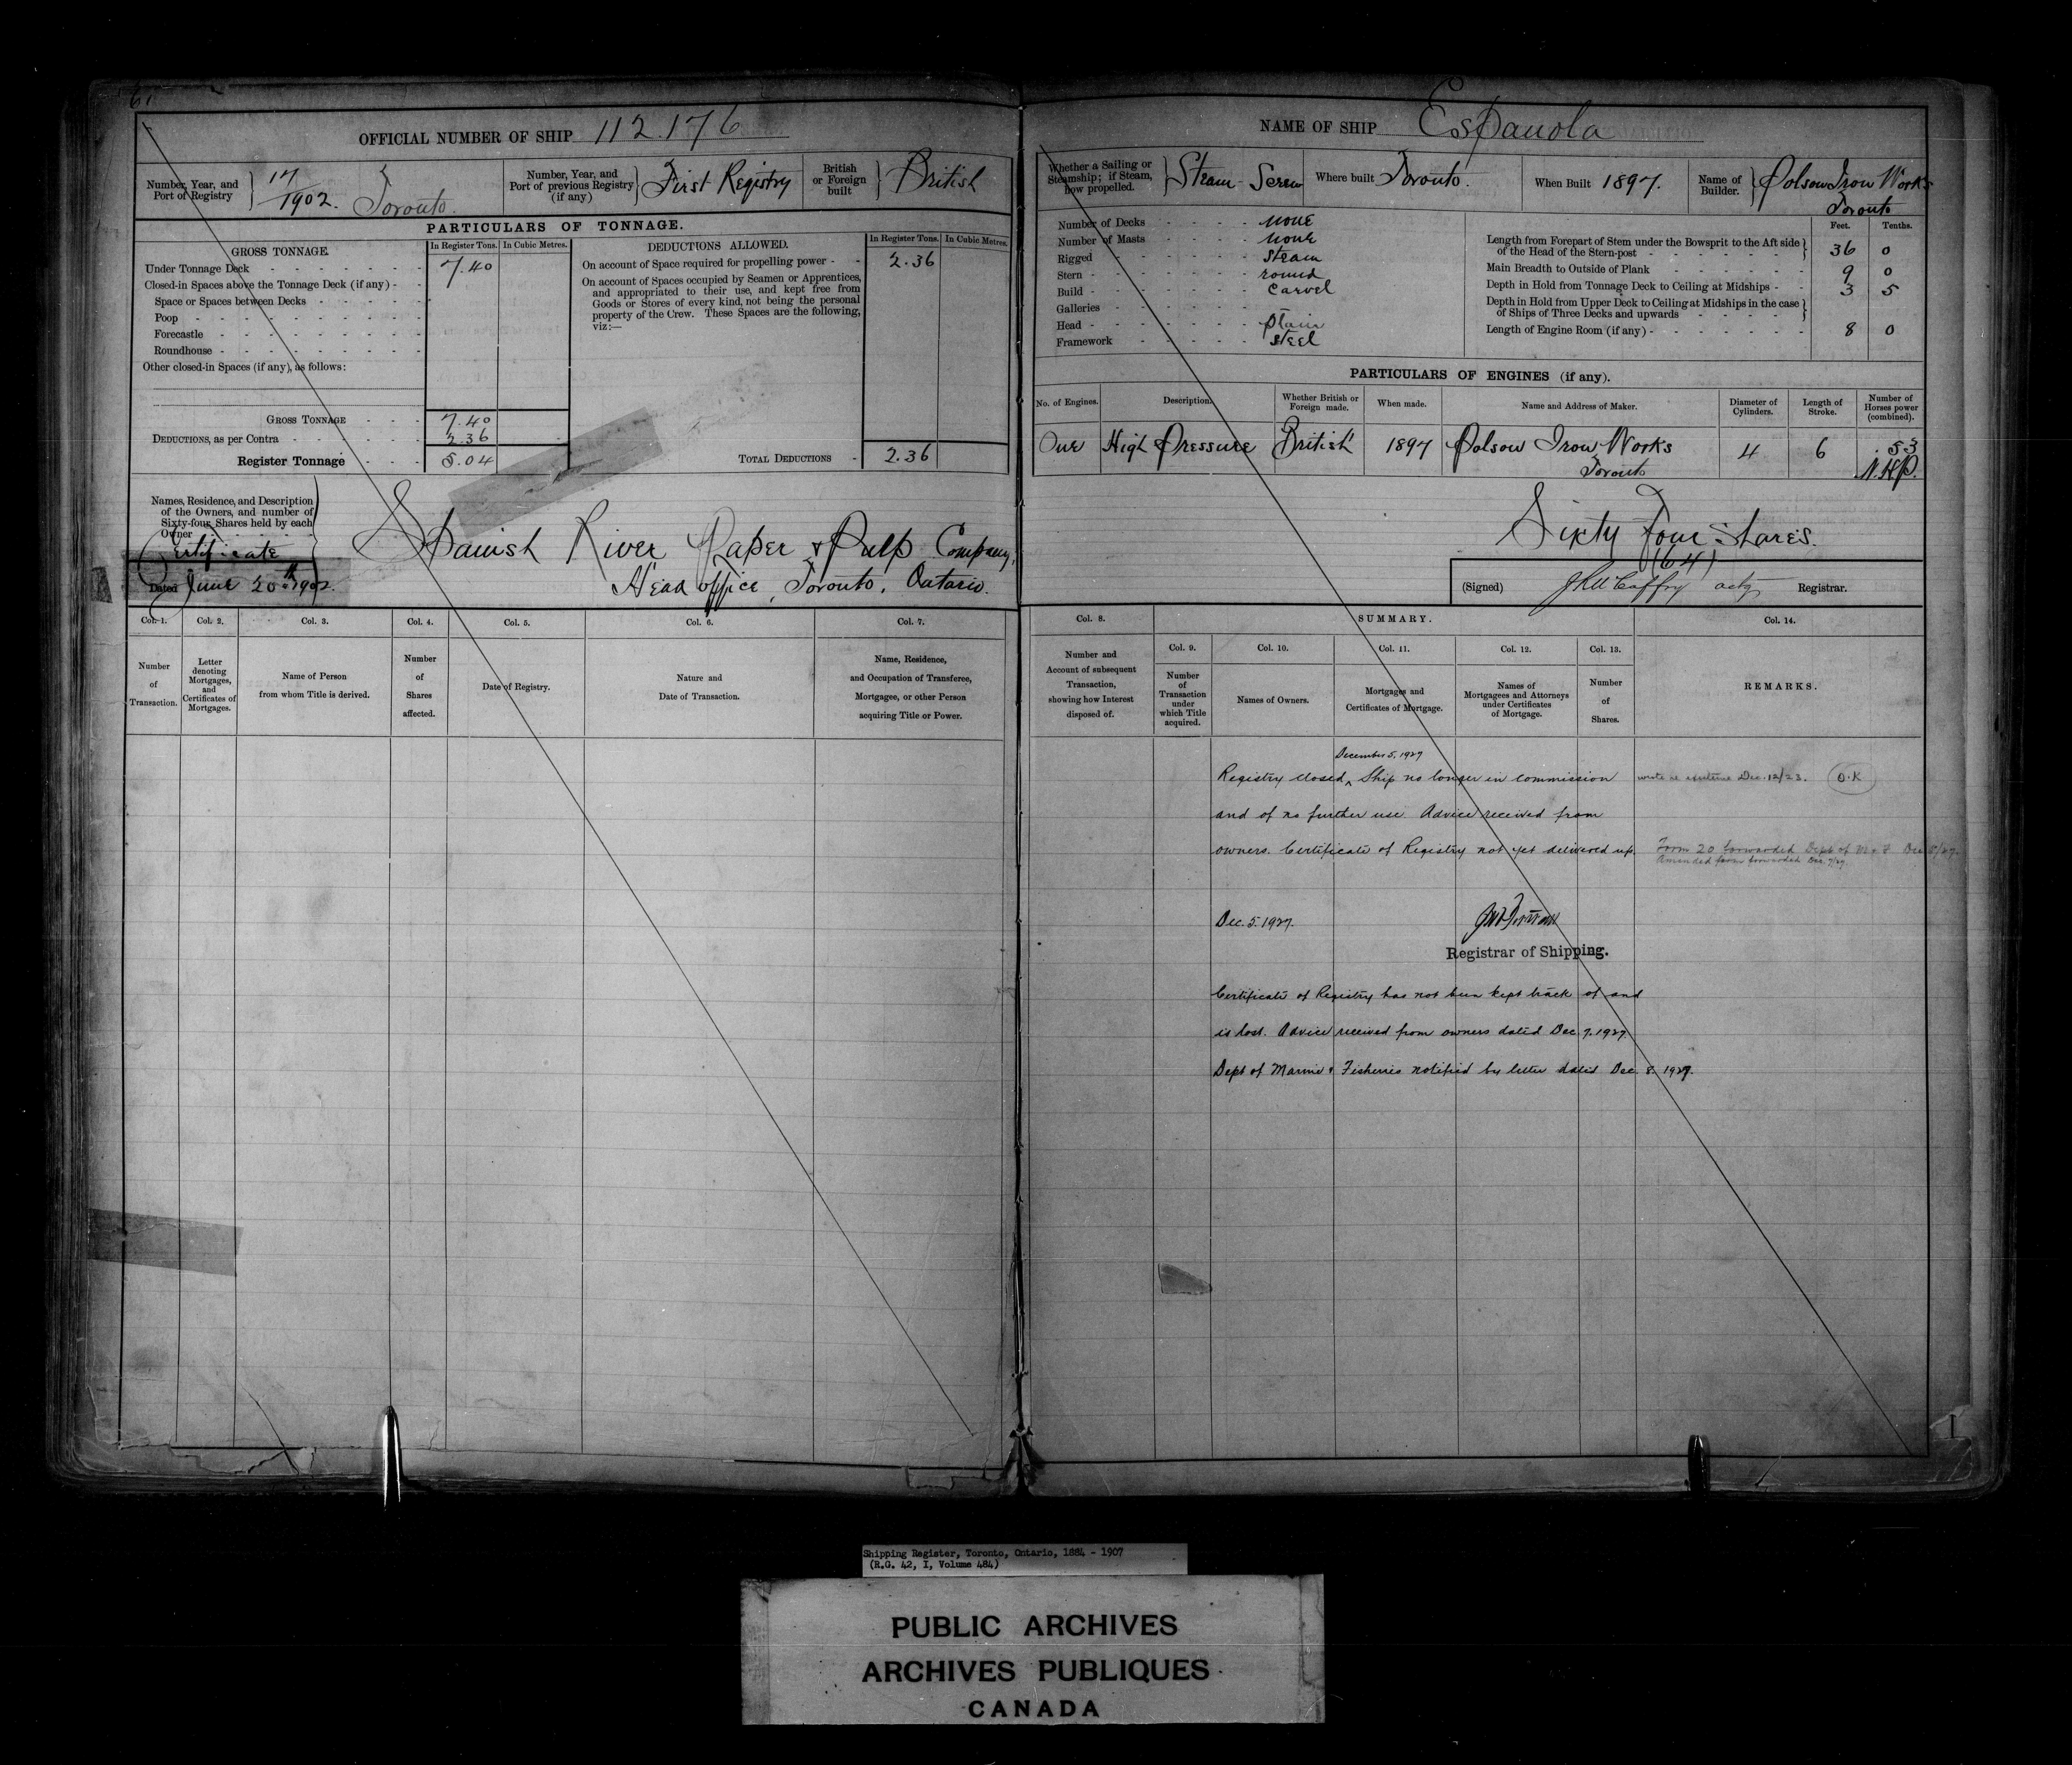 61
OFFICIAL NUMBER OF SHIP 112.176
Number, Year, and Port of Registry 17/1902. Toronto.
Number, Year, and Port of previous Registry (if any) First Registry
British or Foreign built British
PARTICULARS OF TONNAGE.
GROSS TONNAGE. In Register Tons. In Cubic Metres.
Under Tonnage Deck 7.40
Closed-in Spaces above the Tonnage Deck (if any)
Space or Spaces between Decks
Poop
Forecastle
Roundhouse
Other closed-in Spaces (if any), as follows:
GROSS TONNAGE 7.40
DEDUCTIONS, as per Contra 2.36
Register Tonnage 5.04
DEDUCTIONS ALLOWED. In Register Tons. In Cubic Metres.
On account of Space required for propelling power 2.36
On account of Spaces occupied by Seamen or Apprentices,
and appropriated to their use, and kept free from
Goods or Stores of every kind, not being the personal
property of the Crew. These Spaces are the following,
viz:—
TOTAL DEDUCTIONS 2.36
Names, Residence, and Description
of the Owners, and number of
Sixty-four Shares held by each
Owner
Certificate
Dated June 20th 1902.
Spanish River Paper & Pulp Company,
Head office, Toronto, Ontario.
Col. 1. Col. 2. Col. 3. Col. 4. Col. 5. Col. 6. Col. 7.
Number of Transaction.
Letter denoting Mortgages, and Certificates of Mortgages.
Name of Person from whom Title is derived.
Number of Shares affected.
Date of Registry.
Nature and Date of Transaction.
Name, Residence, and Occupation of Transferee, Mortgagee, or other Person acquiring Title or Power.
NAME OF SHIP Espanola
Whether a Sailing or Steamship; if Steam, how propelled. Steam - Screw
Where built Toronto.
When Built 1897.
Name of Builder. Polson Iron Works Toronto
Number of Decks none
Number of Masts none
Rigged steam
Stern round
Build carvel
Galleries
Head plain
Framework steel
Feet. Tenths.
Length from Forepart of Stem under the Bowsprit to the Aft side
of the Head of the Stern-post 36 0
Main Breadth to Outside of Plank 9 0
Depth in Hold from Tonnage Deck to Ceiling at Midships 3 5
Depth in Hold from Upper Deck to Ceiling at Midships in the case
of Ships of Three Decks and upwards
Length of Engine Room (if any) 8 0
PARTICULARS OF ENGINES (if any).
No. of Engines. Description. Whether British or Foreign made. When made. Name and Address of Maker. Diameter of Cylinders. Length of Stroke. Number of Horses power (combined).
One High Pressure British 1897 Polson Iron Works Toronto 4 6 .53 N.H.P.
Sixty Four Shares.
(64)
(Signed) acty Registrar.
Col. 8. SUMMARY. Col. 14.
Number and Account of subsequent Transaction, showing how Interest disposed of.
Col. 9. Col. 10. Col. 11. Col. 12. Col. 13.
Number of Transaction under which Title acquired.
Names of Owners.
Mortgages and Certificates of Mortgage.
Names of Mortgagees and Attorneys under Certificates of Mortgage.
Number of Shares.
REMARKS.
December 5, 1927
Registry closed ^ Ship no longer in commission
wrote re Dec. 12/23. O.K
and of no further use Advice received from
owners. Certificate of Registry not yet delivered up.
Form 20 forwarded Dept of M & F Dec 5/27.
Amended form forwarded Dec 9/27
Dec. 5. 1927.
Registrar of Shipping.
Certificate of Registry has not been kept track of and
is lost. Advice received from owners dated Dec 7. 1927.
Dept of Marine & Fisheries notified by letter dated Dec. 8 1927.
Shipping Register, Toronto, Ontario, 1884 - 1907
(R.G. 42, I, Volume 484)
PUBLIC ARCHIVES
ARCHIVES PUBLIQUES
CANADA